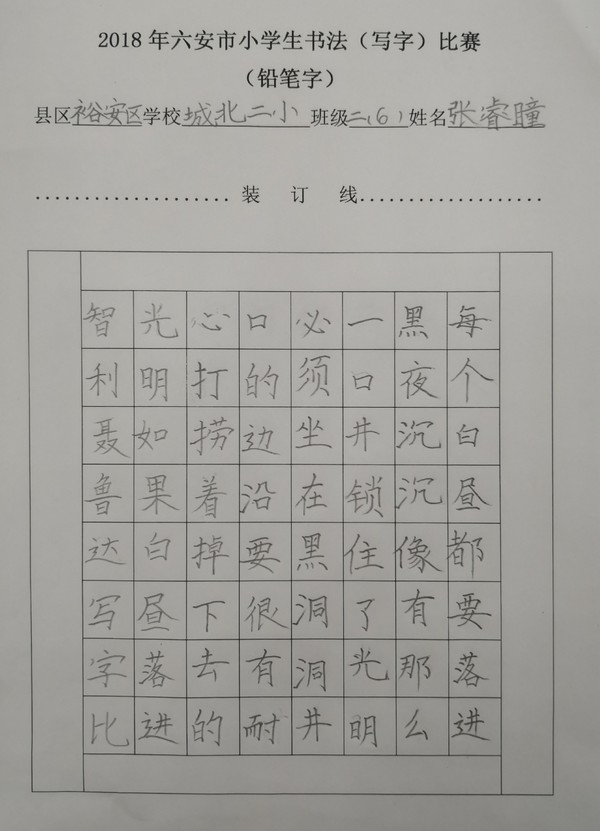 2018年六安市小学生书法（写字）比赛
（铅笔字）
县区裕安区学校城北二小班级二（6）姓名张睿瞳
装 订 线
每个白昼都要落进
黑夜沉沉像有那么
一口井锁住了光明
必须坐在黑洞洞井
口的边沿要很有耐
心打捞着掉下去的
光明如果白昼落进
智利聂鲁达写字比